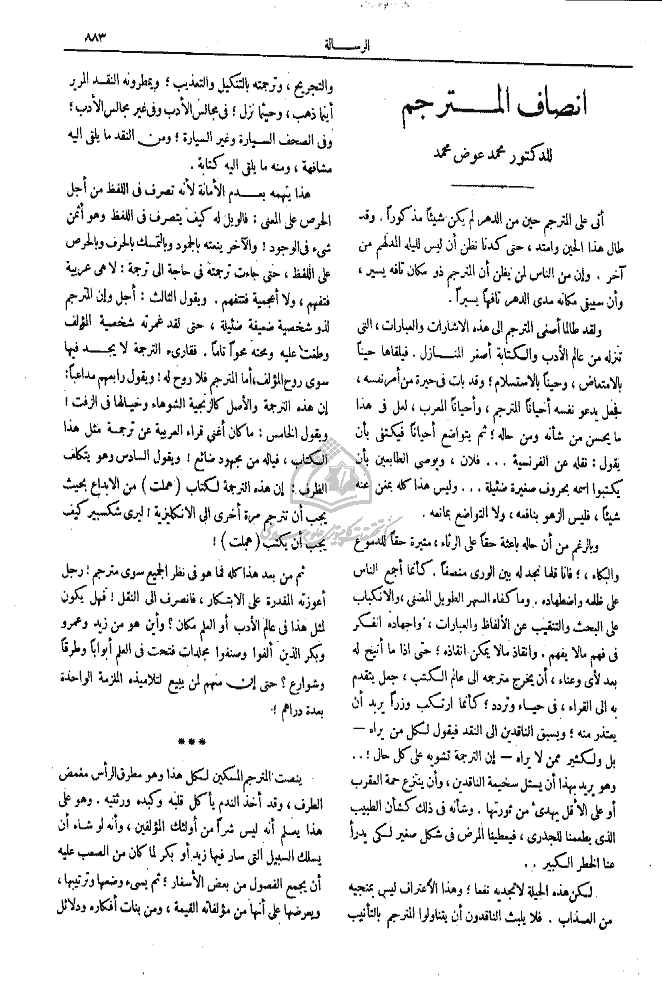 الرسالة
٨٨٣
انصاف المترجم
للدكتور محمد عوض محمد
أتى على المترجم حين من الدهر لم يكن شيئاً مذكوراً. وقد
طال هذا الحين وامتد، حتى كدنا نظن أن ليس لليله المدلهم من
آخر. وإن من الناس لمن يظن أن المترجم ذو مكان تافه يسير،
وأن سيبقى مكانه مدى الدهر تافهاً يسيراً.
ولقد طالما أصغى المترجم الى هذه الاشارات والعبارات، التى
تنزله من عالم الأدب والكتابة أصغر المنازل. فيلقاها حيناً
بالامتعاض، وحيناً بالاستسلام؛ وقد بات فى حيرة من أمر نفسه،
فجعل يدعو نفسه أحياناً المترجم، وأحياناً المعرب، لعل فى هذا
ما يحسن من شأنه ومن حاله؛ ثم يتواضع أحياناً فيكتفى بأن
يقول: نقله عن الفرنسية ... فلان، ويوصى الطابعين بأن
يكتبوا اسمه بحروف صغيرة ضئيلة ... وليس هذا كله بمغن عنه
شيئاً، فليس الزهو بنافعه، ولا التواضع بمانعه.
وبالرغم من أن حاله باعثة حقاً على الرثاء، مثيرة حقاً للدموع
والبكاء،؛ فانا قلما نجد له بين الورى منصفاً. كأنما أجمع الناس
على ظلمه واضطهاده. وما كفاه السهر الطويل المضنى، والانكباب
على البحث والتنقيب عن الألفاظ والعبارات، واجهاده الفكر
فى فهم مالا يفهم. وانقاذ مالا يمكن انقاذه؛ حتى اذا ما أتيح له
بعد لأى وعناء، أن يخرج مترجمه الى عالم الكتب، جعل يتقدم
به الى القراء، فى حياء وتردد؛ كأنما ارتكب وزراً يريد أن
يعتذر منه؛ ويسبق الناقدين الى النقد فيقول لكل من يراه —
بل ولكثير ممن لا يراه — إن الترجمة تشويه على كل حال!..
وهو يريد بهذا أن يستل سخيمة الناقدين، وأن ينتزع حمة العقرب
أو على الأقل يهدىء من ثورتها. وشأنه فى ذلك كشأن الطبيب
الذى يطعمنا للجدرى، فيعطينا المرض فى شكل صغير لكى يدرأ
عنا الخطر الكبير..
لكن هذه الحيلة لا تجديه نفعا؛ وهذا الأعتراف ليس بمنجيه
من العذاب. فلا يلبث الناقدون أن يتناولوا المترجم بالتأنيب
والتجريح، وترجمته بالتنكيل والتعذيب؛ ويمطرونه النقد المرير
أينما ذهب، وحيثما نزل؛ فى مجالس الأدب وفى غير مجالس الأدب؛
وفى الصحف السيارة وغير السيارة؛ ومن النقد ما يلقى اليه
مشافهة، ومنه ما يلقى اليه كتابة.
هذا يتهمه بعدم الأمانة لأنه تصرف فى اللفظ من أجل
الحرص على المعنى: فالويل له كيف يتصرف فى اللفظ وهو أثمن
شىء فى الوجود! والآخر ينعته بالجمود وبالتمسك بالحرف وبالحرص
على اللفظ، حتى جاءت ترجمته فى حاجة الى ترجمة: لا هى عربية
فتفهم، ولا أعجمية فتتفهم. ويقول الثالث: أجل وإن المترجم
لذو شخصية ضعيفة ضئيلة، حتى لقد غمرته شخصية المؤلف
وطغت عليه ومحته محواً تاماً. فقارىء الترجمة لا يجد فيها
سوى روح المؤلف، أما المترجم فلا روح له! ويقول رابعهم مداعباً:
إن هذه الترجمة والأصل كالزنجية الشوهاء وخيالها فى الزفت!
ويقول الخامس: ما كان أغنى قراء العربية عن ترجمة مثل هذا
الكتاب، فياله من مجهود ضائع! ويقول السادس وهو يتكلف
الظرف: إن هذه الترجمة لكتاب (هملت) من الابداع بحيث
يجب أن تترجم مرة أخرى الى الانكليزية! ليرى شكسبير كيف
يجب أن يكتب (هملت)!
ثم من بعد هذا كله فما هو فى نظر الجميع سوى مترجم! رجل
أعوزته المقدرة على الابتكار، فانصرف الى النقل! فهل يكون
لمثل هذا فى عالم الأدب أو العلم مكان؟ وأين هو من زيد وعمرو
وبكر الذين ألفوا وصنفوا مجلدات فتحت فى العلم أبواباً وطرقاً
وشوارع؟ حتى إن منهم لمن يبيع لتلاميذه الملزمة الواحدة
بعدة دراهم!
***
ينصت المترجم المسكين لكل هذا وهو مطرق الرأس مغمض
الطرف، وقد أخذ الندم يأكل قلبه وكبده ورئتيه. وهو على
هذا يعلم أنه ليس شراً من أولئك المؤلفين، وأنه لو شاء أن
يسلك السبيل التى سار فيها زيد أو بكر لما كان من الصعب عليه
أن يجمع الفصول من بعض الأسفار؛ ثم يسىء وضعها وترتيبها،
ويعرضها على أنها من مؤلفاته القيمة، ومن بنات أفكاره ودلائل